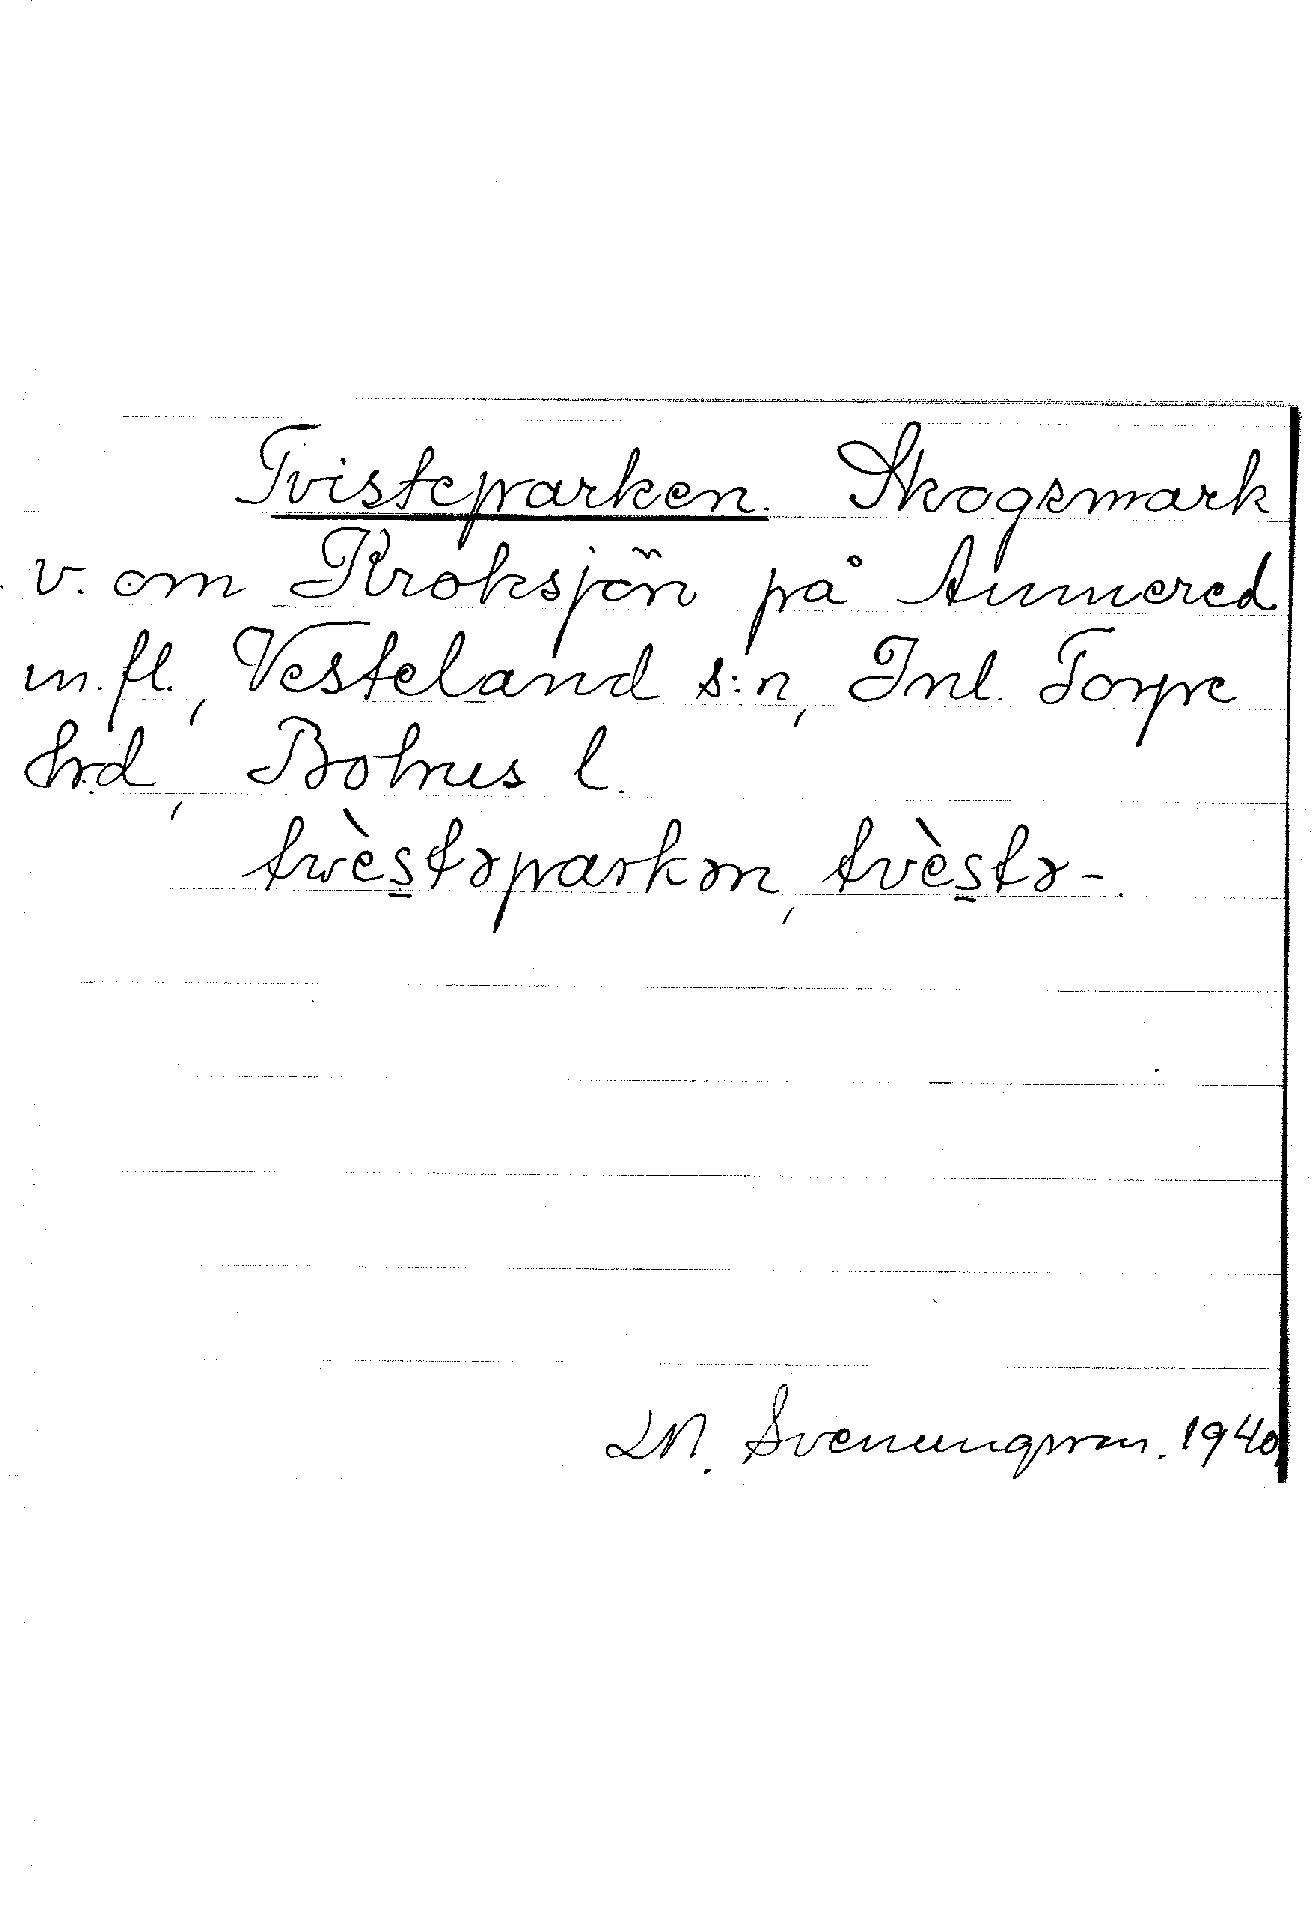 Tvisteparken. Skogsmark
v. om Kroksjön på Aumered
m.fl., Vesteland s:n, Inl. Torpe
hrd, Bohus l.
twèstəparkən, tvèstə-.
M. Svenungsson. 1940